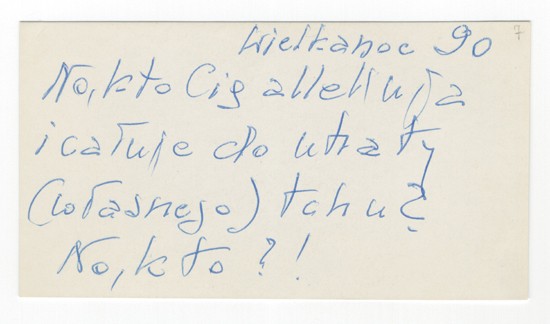 7
Wielkanoc 90
No, kto Cię allelłuja
i całuje do utraty
(własnego) tchu?
No, kto?!